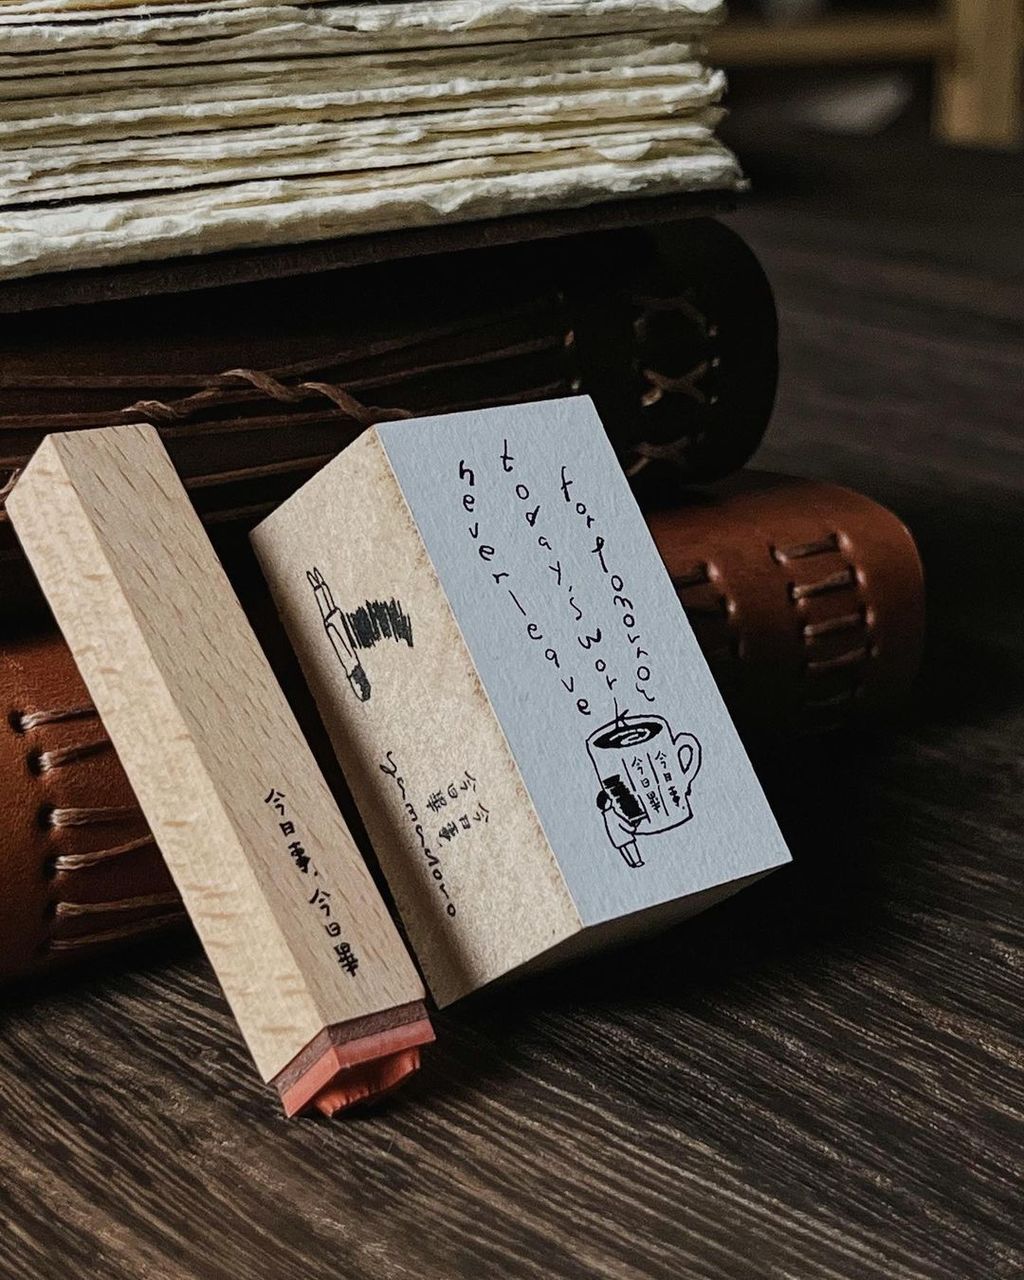 今日事，今日畢
今日事，
今日畢
yamadoro
never leave
today's work
for tomorrow
今日事，
今日畢